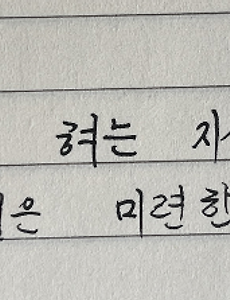 혀는 지
은 미련한